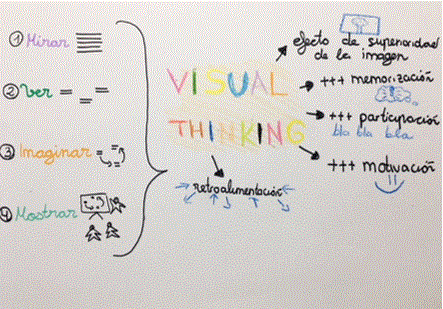 ① Mirar
② Ver
③ Imaginar
④ Mostrar
VISUAL
THINKING
efecto de superioridad
de la imagen
+++ memorización
+++ participación
bla bla bla
+++ motivación
retroalimentación